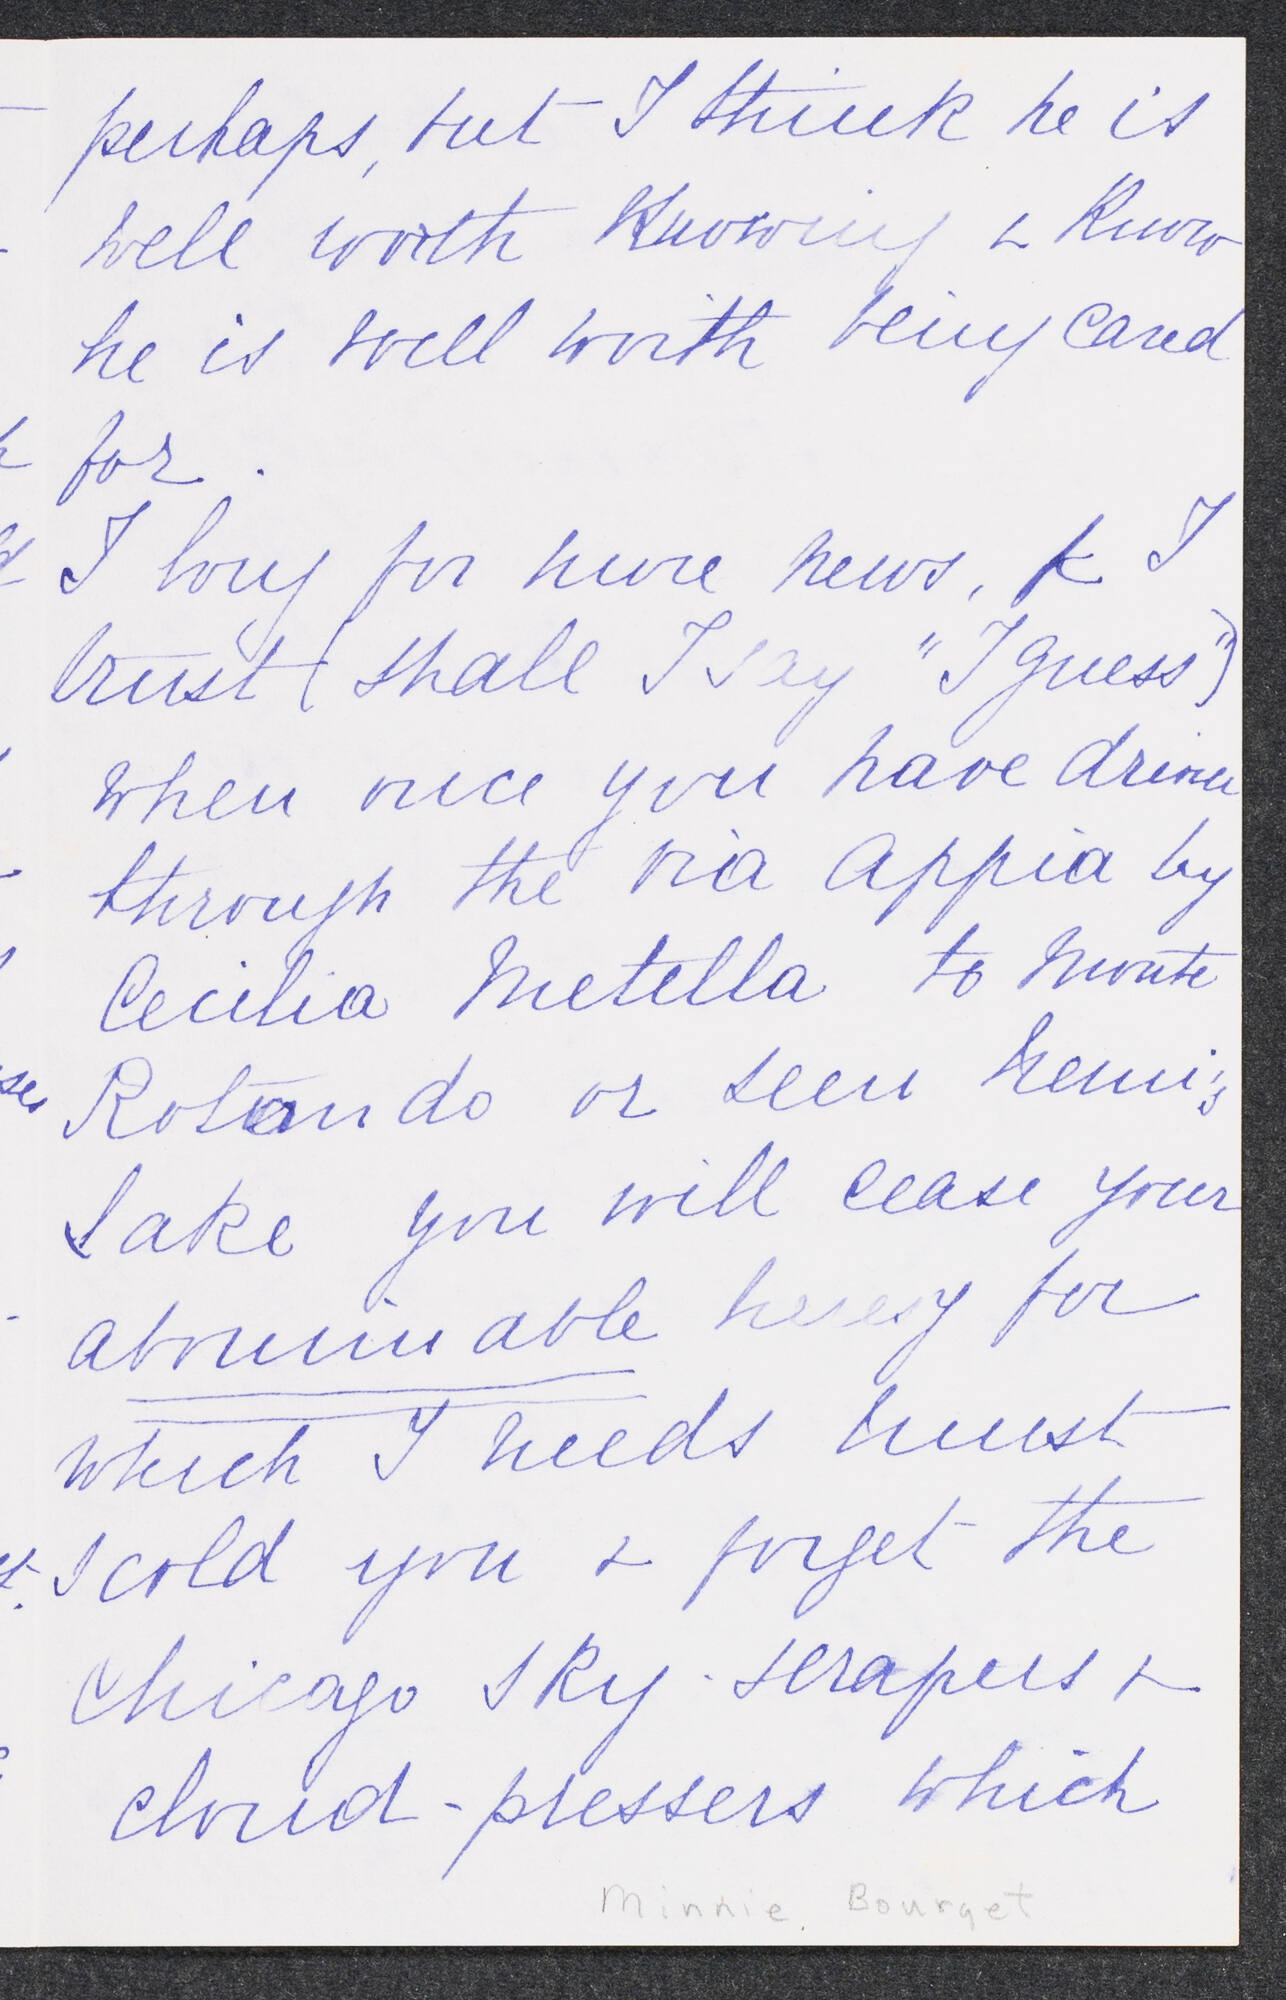 perhaps, but I think he is
well worth knowing & know
he is well worth being cared
for.
I long for more news, & I
trust (shall I say "I guess")
when once you have driven
through the via Appia by
Cecilia Metella to Monte
Rotondo or seen Nemi's
Lake you will cease your
abominable heresy for
which I needs must
scold you & forget the
Chicago sky-scrapers &
cloud-pressers which
Minnie Bourget